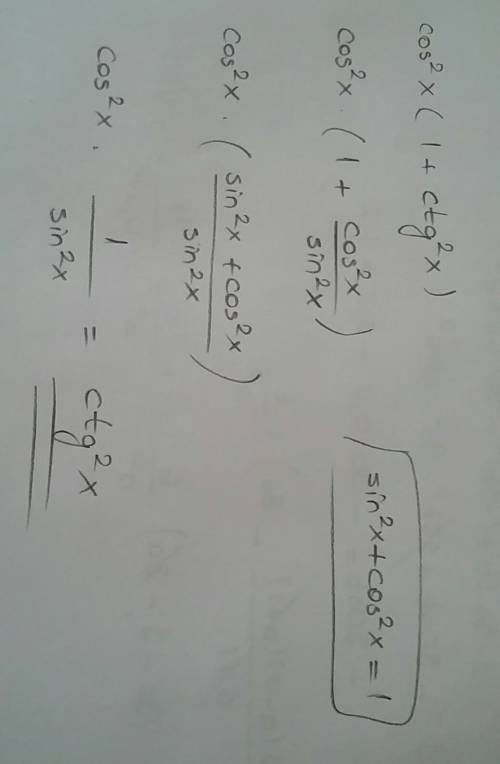 cos²x(1+ctg²x)
cos²x·(1+cos²x/sin²x)
sin²x+cos²x=1
cos²x·(sin²x+cos²x/sin²x)
cos²x·1/sin²x=ctg²x